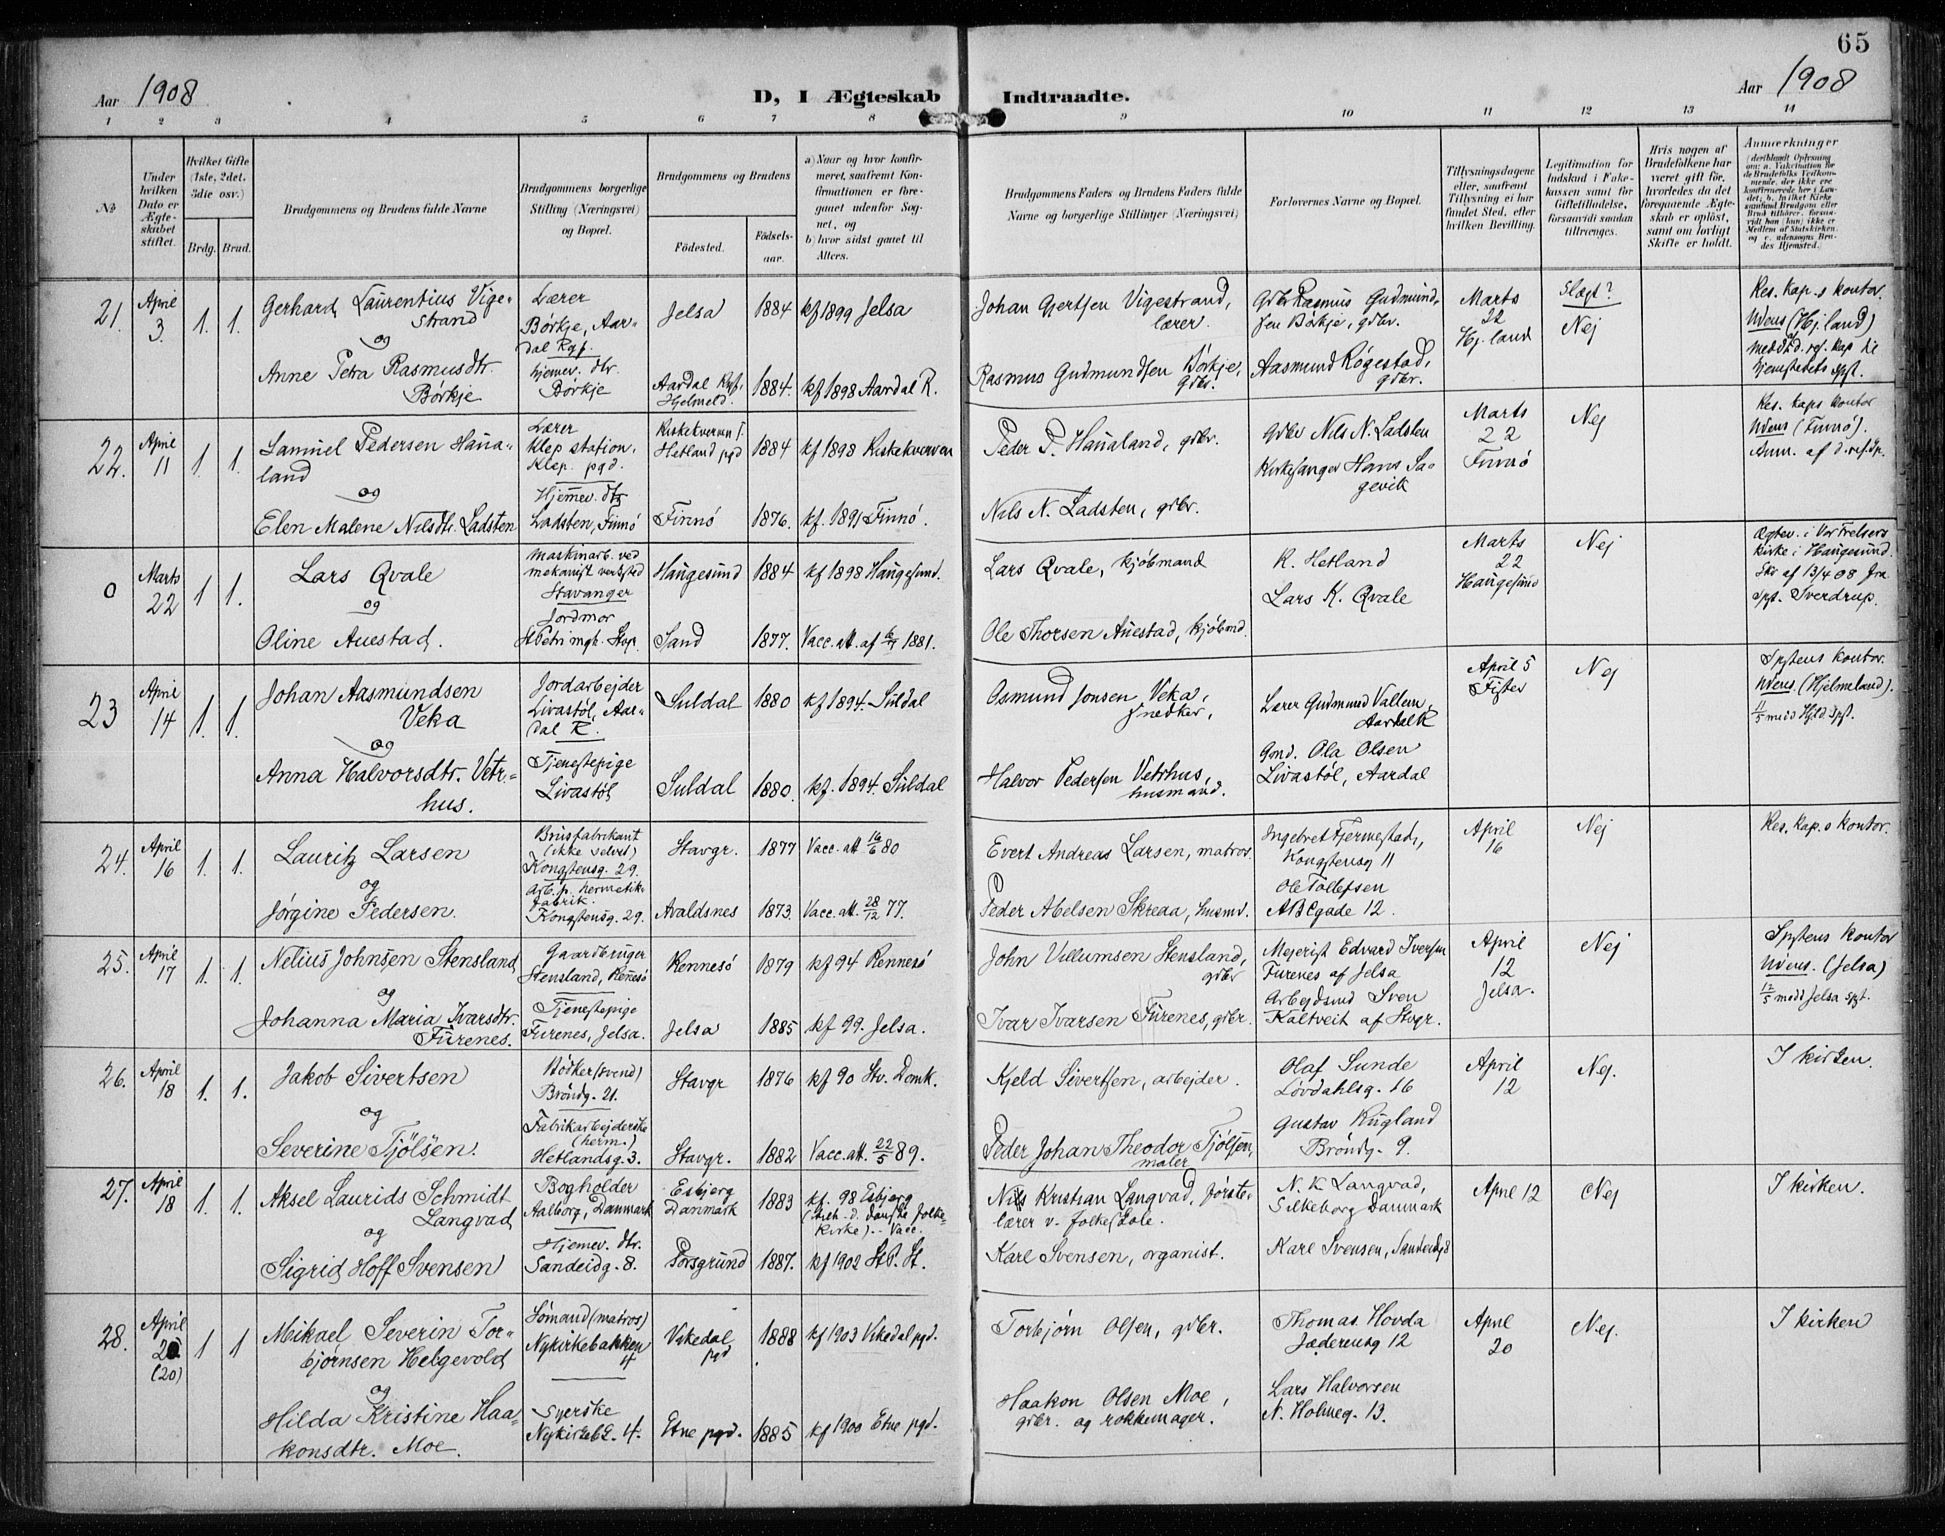 65
Aar 1908
D, I Ægteskab Indtraadte.
Aar 1908
1 2 3 4 5 6 7 8 9 10 11 12 13 14
No
Under hvilken Dato er Ægteskabet stiftet.
Hvilket Gifte (1ste, 2det, 3die osv.)
Brdg. Brud.
Brudgommens og Brudens fulde Navne
Brudgommens borgerlige Stilling (Næringsvei) og Bopæl.
Brudgommens og Brudens
Fødested.
Fødsels-aar.
a) Naar og hvor konfirmeret, saafremt Konfirmationen er foregaaet udenfor Sognet, og
b) hvor sidst gaaet til Alters.
Brudgommens Faders og Brudens Faders fulde Navne og borgerlige Stillinger (Næringsvei)
Forlovernes Navne og Bopæl.
Tillysningsdagene eller, saafremt Tillysning ei har fundet Sted, efter hvilken Bevilling.
Legitimation for Indskud i Enkekassen samt for Giftetilladelse, forsaavidt saadan tiltrænges.
Hvis nogen af Brudefolkene har været gift før, hvorledes da det foregaaende Ægteskab er opløst, samt om lovligt Skifte er holdt.
Anmærkninger
21. April 3. 1. 1.
Gerhard Laurentius Vigestrand
og
Anne Petra Rasmusdtr. Børkje
Lærer
Børkje, Aardal Rgf.
hjemev. dtr.
Børkje
Jelsa 1884 kf 1899 Jelsa
Aardal Ryf. Hjelmeld. 1884. kf 1898 Aardal R.
Johan Gjertsen Vigestrand, lærer.
Rasmus Gudmundsen Børkje, gdbr.
Gdbr Rasmus Gudmundsen Børkje, gdbr.
Aasmund Røgestad, gdbr.
Marts 22 Hj.land
Slegt? Nej
Res. kap.s kontor.
Udens (Hj.land)
22. April 11 1. 1.
Samuel Pedersen Haualand
og
Elen Malene Nilsdtr. Ladsten
Lærer
Klep station, Klep. pgd.
Hjemev. dtr
Ladsten, Finnö
Hetland pgd 1884 kf 1898
Finnö 1876. kf. 1891 Finnö.
Peder P. Haualand, gdbr.
Nils N. Ladsten, gdbr.
Gdbr Nils N. Ladsten
Kirkesanger Hans Sagevik
Marts 22 Finnö
Nej
Res. kaps kontor
Udens (Finnö).
0 Marts 22 1 1.
Lars Qvale
og
Oline Auestad.
Maskinarb. ved mekanisk verksted Stavanger
Jordmor
Haugesund 1884 kf 1898 Haugesund.
Sand 1877. Vacc. att. af 1881.
Lars Qvale, kjöbmand
Ole Thorsen Auestad, kjöbmd.
R. Hetland
Lars K. Qvale
Marts 22 Haugesund
Nej
Ægtev. i Vor Frelsers kirke i Haugesund.
Skr af 13/4 08 fra Spr. Sverdrup.
23 April 14 1. 1.
Johan Aasmundsen Veka
og
Anna Halvorsdtr. Vetrhus.
Jordarbejder
Livastöl, Aardal R.
Tjenestepige
Livastöl
Suldal 1880 kf 1894. Suldal
Suldal 1880. kf. 1894. Suldal
Osmund Jonsen Veka, snedker,
Halvor Pedersen Vetrhus, husmand.
Lærer Gudmund Vallem, Aardal R
Gmd. Ola Olsen Livastöl, Aardal
April 5 Fister
Nej
Spstens kontor.
Udens (Hjelmeland).
24. April 16 1. 1.
Lauritz Larsen
og
Jørgine Pedersen.
Brusfabrikant (ikke selvst)
Kongstensg. 29.
Arb. p. hermetikfabrik.
Kongstensg. 29.
Stavgr. 1877 Vacc. att 16/6 80
Avaldsnes 1873. Vacc. att. 28/12 77.
Evert Andreas Larsen, matros.
Peder Abelsen Skreaa, husmd.
Ingebret Fjermestad, Kongstensg 11
Ole Tollefsen ABCgade 12.
April 16
Nej
Res. kap.s kontor.
25. April 17 1. 1.
Nelius Johnsen Stensland
og
Johanna Maria Ivarsdtr. Furenes.
Gaardbruger
Stensland, Rennesö
Tjenestepige
Furenes, Jelsa.
Rennesö 1879 kf 94 Rennesö
Jelsa 1885 kf 99. Jelsa.
John Villumsen Stensland, gdbr
Ivar Ivarsen Furenes, gdbr.
Mejerist Edvard Iversen Furenes af Jelsa
Arbejdsmd Sven Kaltveit af Stvgr.
April 12 Jelsa.
Nej
Spstens kontor
Udens. (Jelsa)
26. April 18 1. 1.
Jakob Sivertsen
og
Severine Tjölsen.
Bödker (svend)
Bröndg. 21.
Fabrikarbejderske (herm.)
Hetlandsg. 3.
Stavgr 1876 kf 90 Stv. Domk.
Stavgr. 1882 Vacc. att. 22/5 89.
Kjeld Sivertsen, arbejder.
Peder Johan Theodor Tjölsen, maler
Olaf Sunde Lövdahlsg. 16
Gustav Rugland Bröndg. 9.
April 12
Nej.
I kirken.
27. April 18 1. 1.
Aksel Laurids Schmidt Langvad
og
Sigrid Hoff Svensen
Bogholder
Aalborg, Danmark
Hjemev. dtr.
Sandeidg. 8.
Esbjerg Danmark 1883 kf. 98 Esbjerg
Porsgrund 1887. kf 1902 St P. St.
Nils Kristian Langvad, förstelærer v. folkeskole.
Karl Svensen, organist.
N. K Langvad, Silkeborg Danmark
Karl Svensen, Sandeidg 8
April 12
Nej
I kirken.
28. April 20 (20) 1 1
Mikael Severin Torbjörnsen Helgevold
og
Hilda Kristine Haakonsdtr. Moe.
Sömand (matros)
Nykirkebakken 4
Syerske
Nykirkeb. 4.
Vikedal pgd 1888 kf 1903 Vikedal pgd.
Etne pgd. 1885 kf 1900 Etne pgd.
Torbjörn Olsen, gdbr.
Haakon Olsen Moe, gdbr. og rokkemager.
Thomas Hovda Jæderensg 12
Lars Halvorsen N. Holmeg. 13.
April 20
Nej.
I kirken